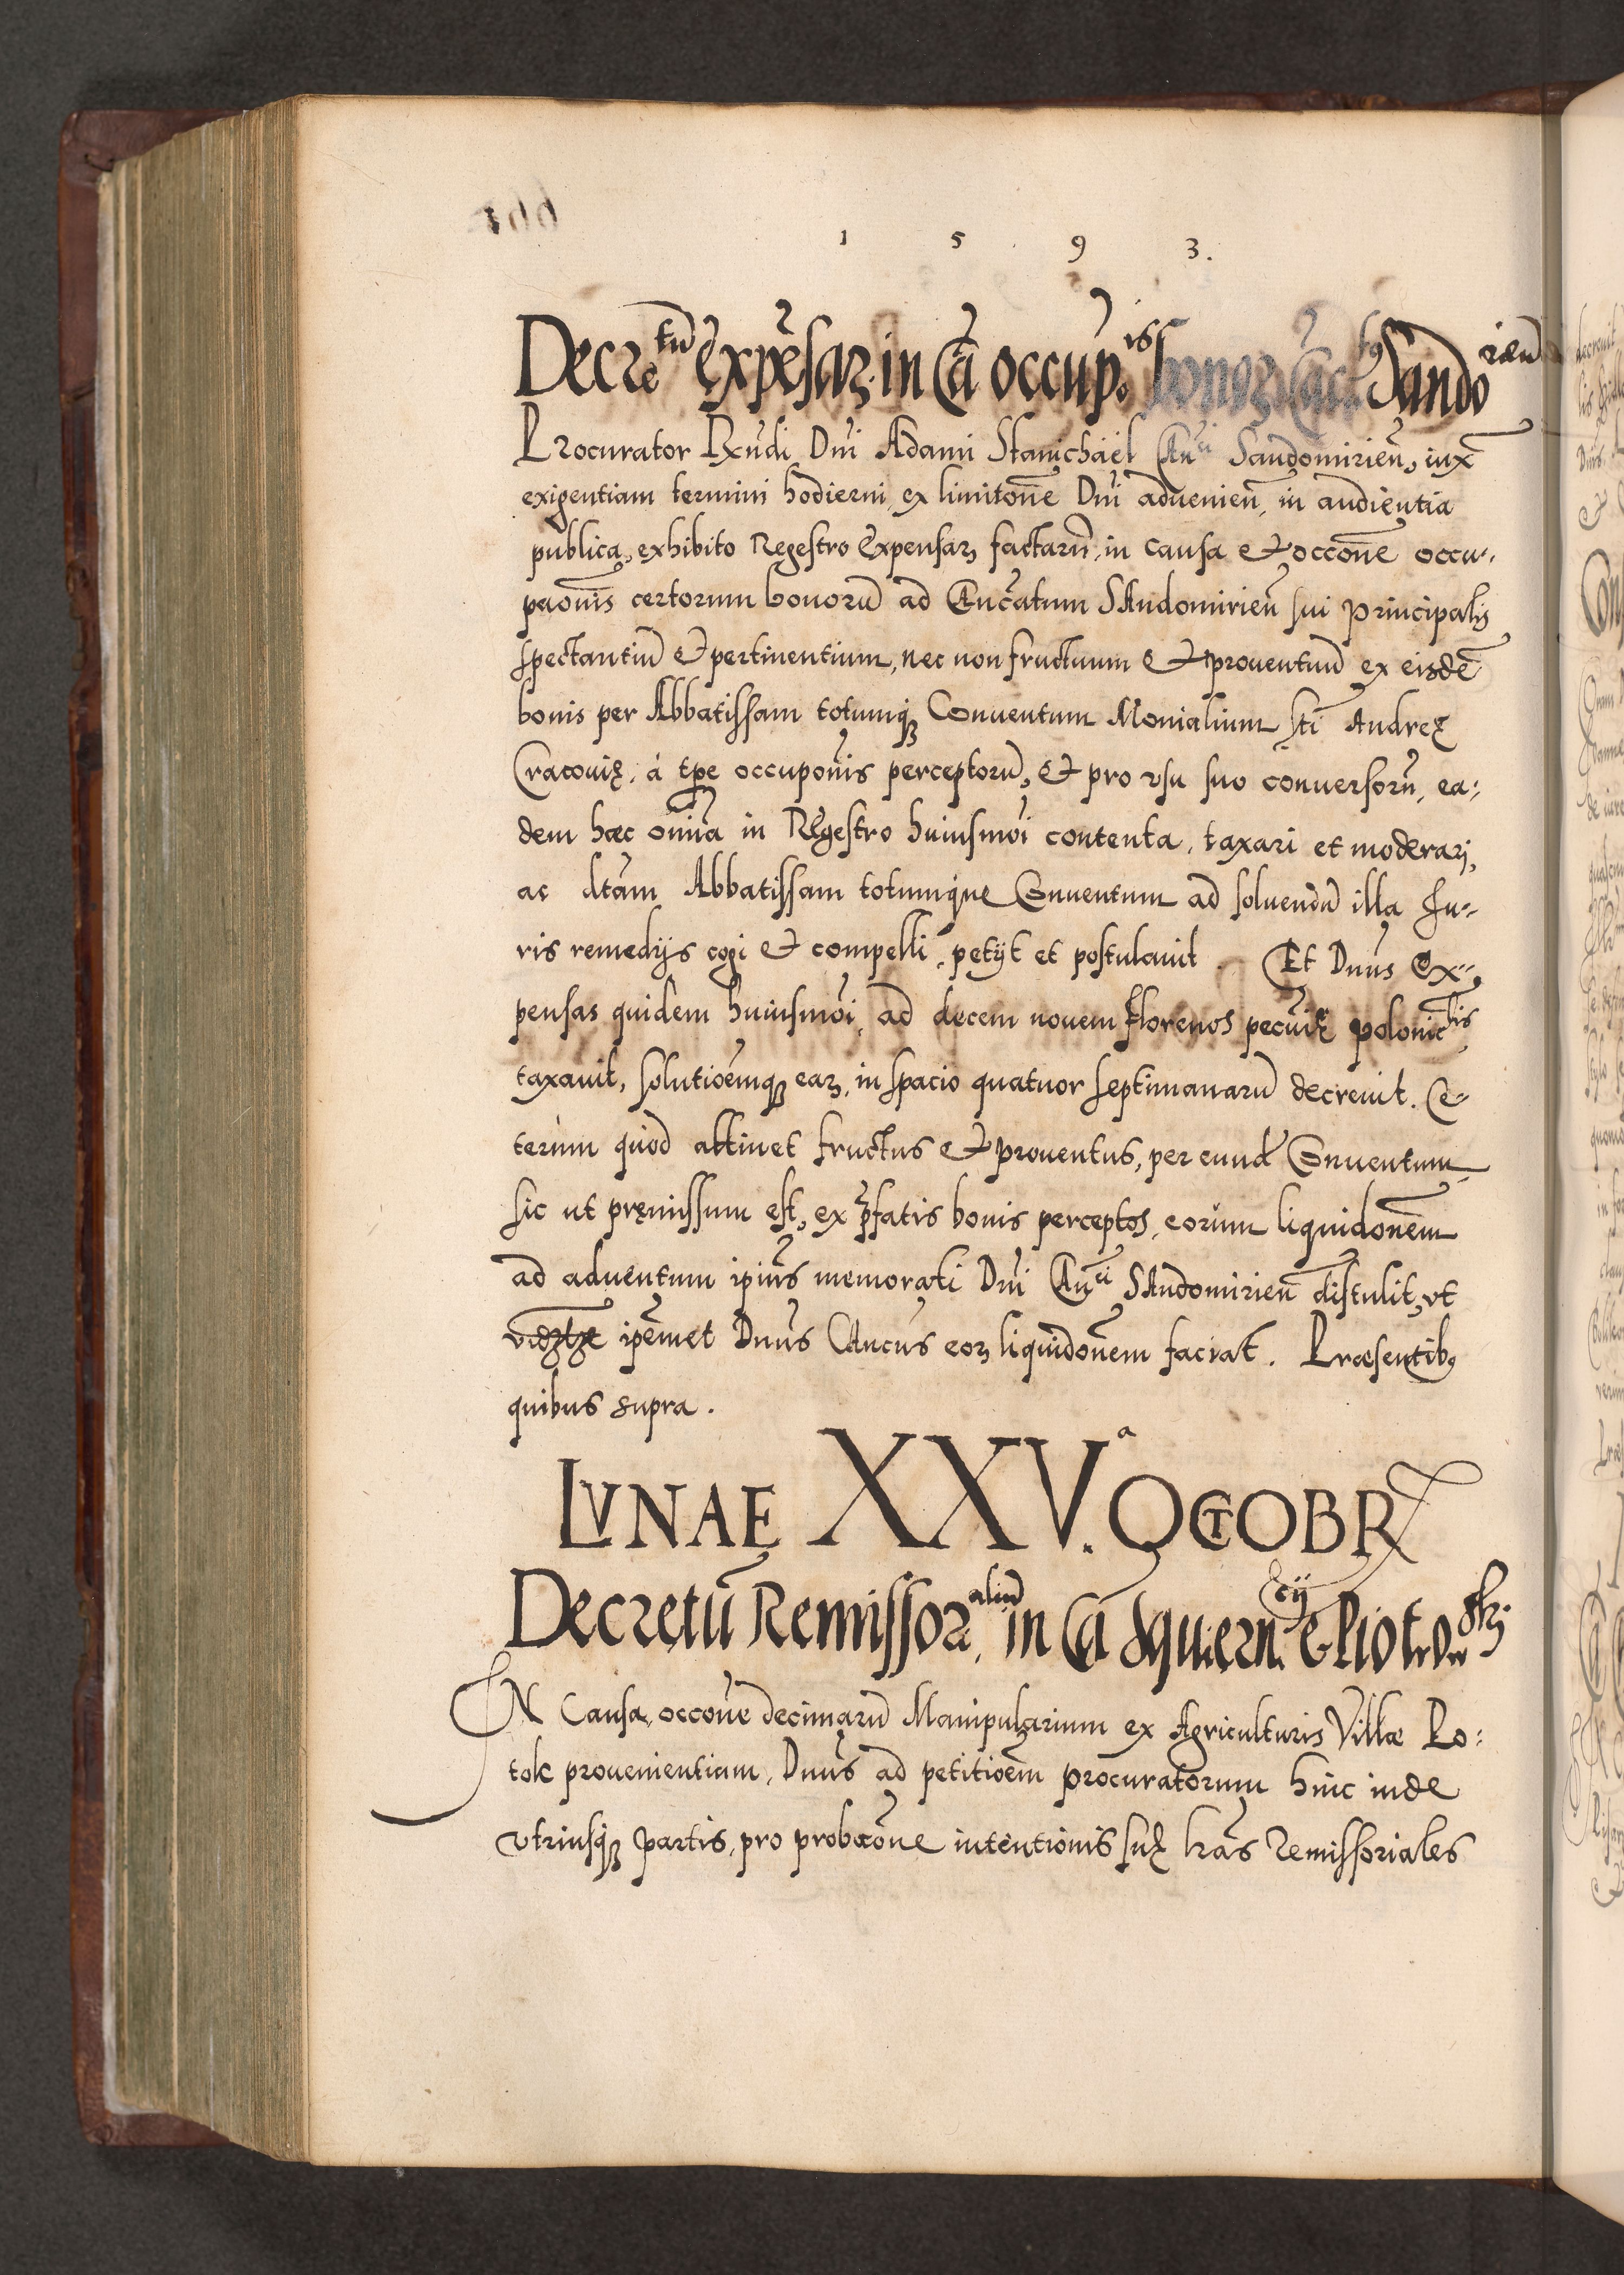 1 5 9 3.
Decretũ Expẽsaꝝ in Cã occup.is bonoꝝ Canctꝰ Sando
Procurator Rxñdi Dñi Adami Stanichael Canci Sandomirien̄, iux̄
exigentiam termini hodierni, ex limitoñe Dñi aduenien̄, in audientia
publica, exhibito Regestro Expensaꝝ factarũ, in causa et occoñe occu-
paoñis certorum bonorũ ad Cancatum SAndomirien̄ sui principalis
spectantiũ et pertinentium, nec non fructuum et prouentuũ ex eisdẽ
bonis per Abbatissam totumqꝫ Conuentum Monialium Sti Andreę
Cracouię, á tp̄e occupoñis perceptorũ, et pro vsu suo conuersorũ, ea-
dem hæc omñia in Regestro huiusmõi contenta, taxari et moderari,
ac dtam Abbatissam totumque Conuentum ad soluendũ illa Iu-
ris remedijs cogi et compelli, petijt et postulauit. Et Dñus Ex-
pensas quidem huiusmõi, ad decem nouem florenos pecũię polonicłis
taxauit, solutioẽmqꝫ eaꝝ, in spacio quatuor septimanarũ decreuit. Ce-
terum quod attinet fructus et prouentus, per eund Conuentum
sic ut pręmissum est, ex pr̄fatis bonis perceptos, eorum liquidoñem
ad aduentum ipiũs memorati Dñi Canci SAndomirien̄ distulit, vt
ipẽmet Dñus Cancus eoꝝ liquidoñem faciat. Præsentibꝰ
quibus supra.
LVNAE XXV.a OCTOBR
Decretũ Remissoraliũ, in Cã
IN Causa, occoñe decimarũ Manipularium ex Agriculturis Villæ Po-
tok prouenientium, Dñus ad petitioẽm procuratorum hinc inde
vtriusqꝫ partis, pro probaoñe intentionis suę lr̃as Remissoriales